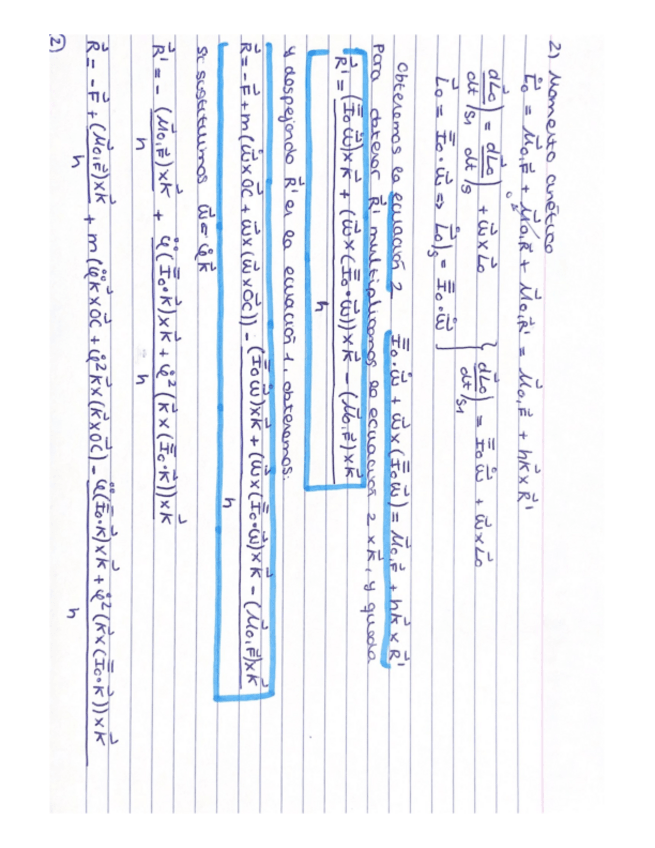 2) Momento cinético
L̇⃗o = M⃗o,F⃗ + M⃗o,R⃗ + M⃗o,R⃗' = M⃗o,F⃗ + hK⃗ x R⃗'
0
dL⃗o/dt)S1 = dL⃗o/dt)S + ω⃗ x L⃗o
L⃗o = I̿o · ω⃗ => L̇⃗o)S = I̿o · ω̇⃗
{ dL⃗o/dt)S1 = I̿o ω̇⃗ + ω⃗ x L⃗o
Obtenemos la ecuación 2 I̿o · ω̇⃗ + ω⃗ x (I̿o ω⃗) = M⃗o,F⃗ + hK⃗ x R⃗'
Para obtener R⃗' multiplicamos la ecuación 2 x K⃗, y queda
R⃗' = ((I̿o ω̇⃗) x K⃗ + (ω⃗ x (I̿o · ω⃗)) x K⃗ - (M⃗o,F⃗) x K⃗) / h
y despejando R⃗' en la ecuación 1, obtenemos:
R⃗ = -F⃗ + m(ω̇⃗ x OC⃗ + ω⃗ x (ω⃗ x OC⃗)) - ((I̿o ω̇⃗) x K⃗ + (ω⃗ x (I̿o · ω⃗) x K⃗ - (M⃗o,F⃗) x K⃗) / h
Si sustituimos ω⃗ = φ̇ K⃗
R⃗' = - (M⃗o,F⃗) x K⃗ / h + (φ̈ (I̿o · K⃗) x K⃗ + φ̇² (K⃗ x (I̿o · K⃗)) x K⃗) / h
R⃗ = -F⃗ + (M⃗o,F⃗) x K⃗ / h + m(φ̈ K⃗ x OC⃗ + φ̇² K⃗ x (K⃗ x OC⃗) - (φ̈ (I̿o · K⃗) x K⃗ + φ̇² (K⃗ x (I̿o · K⃗)) x K⃗) / h
2)